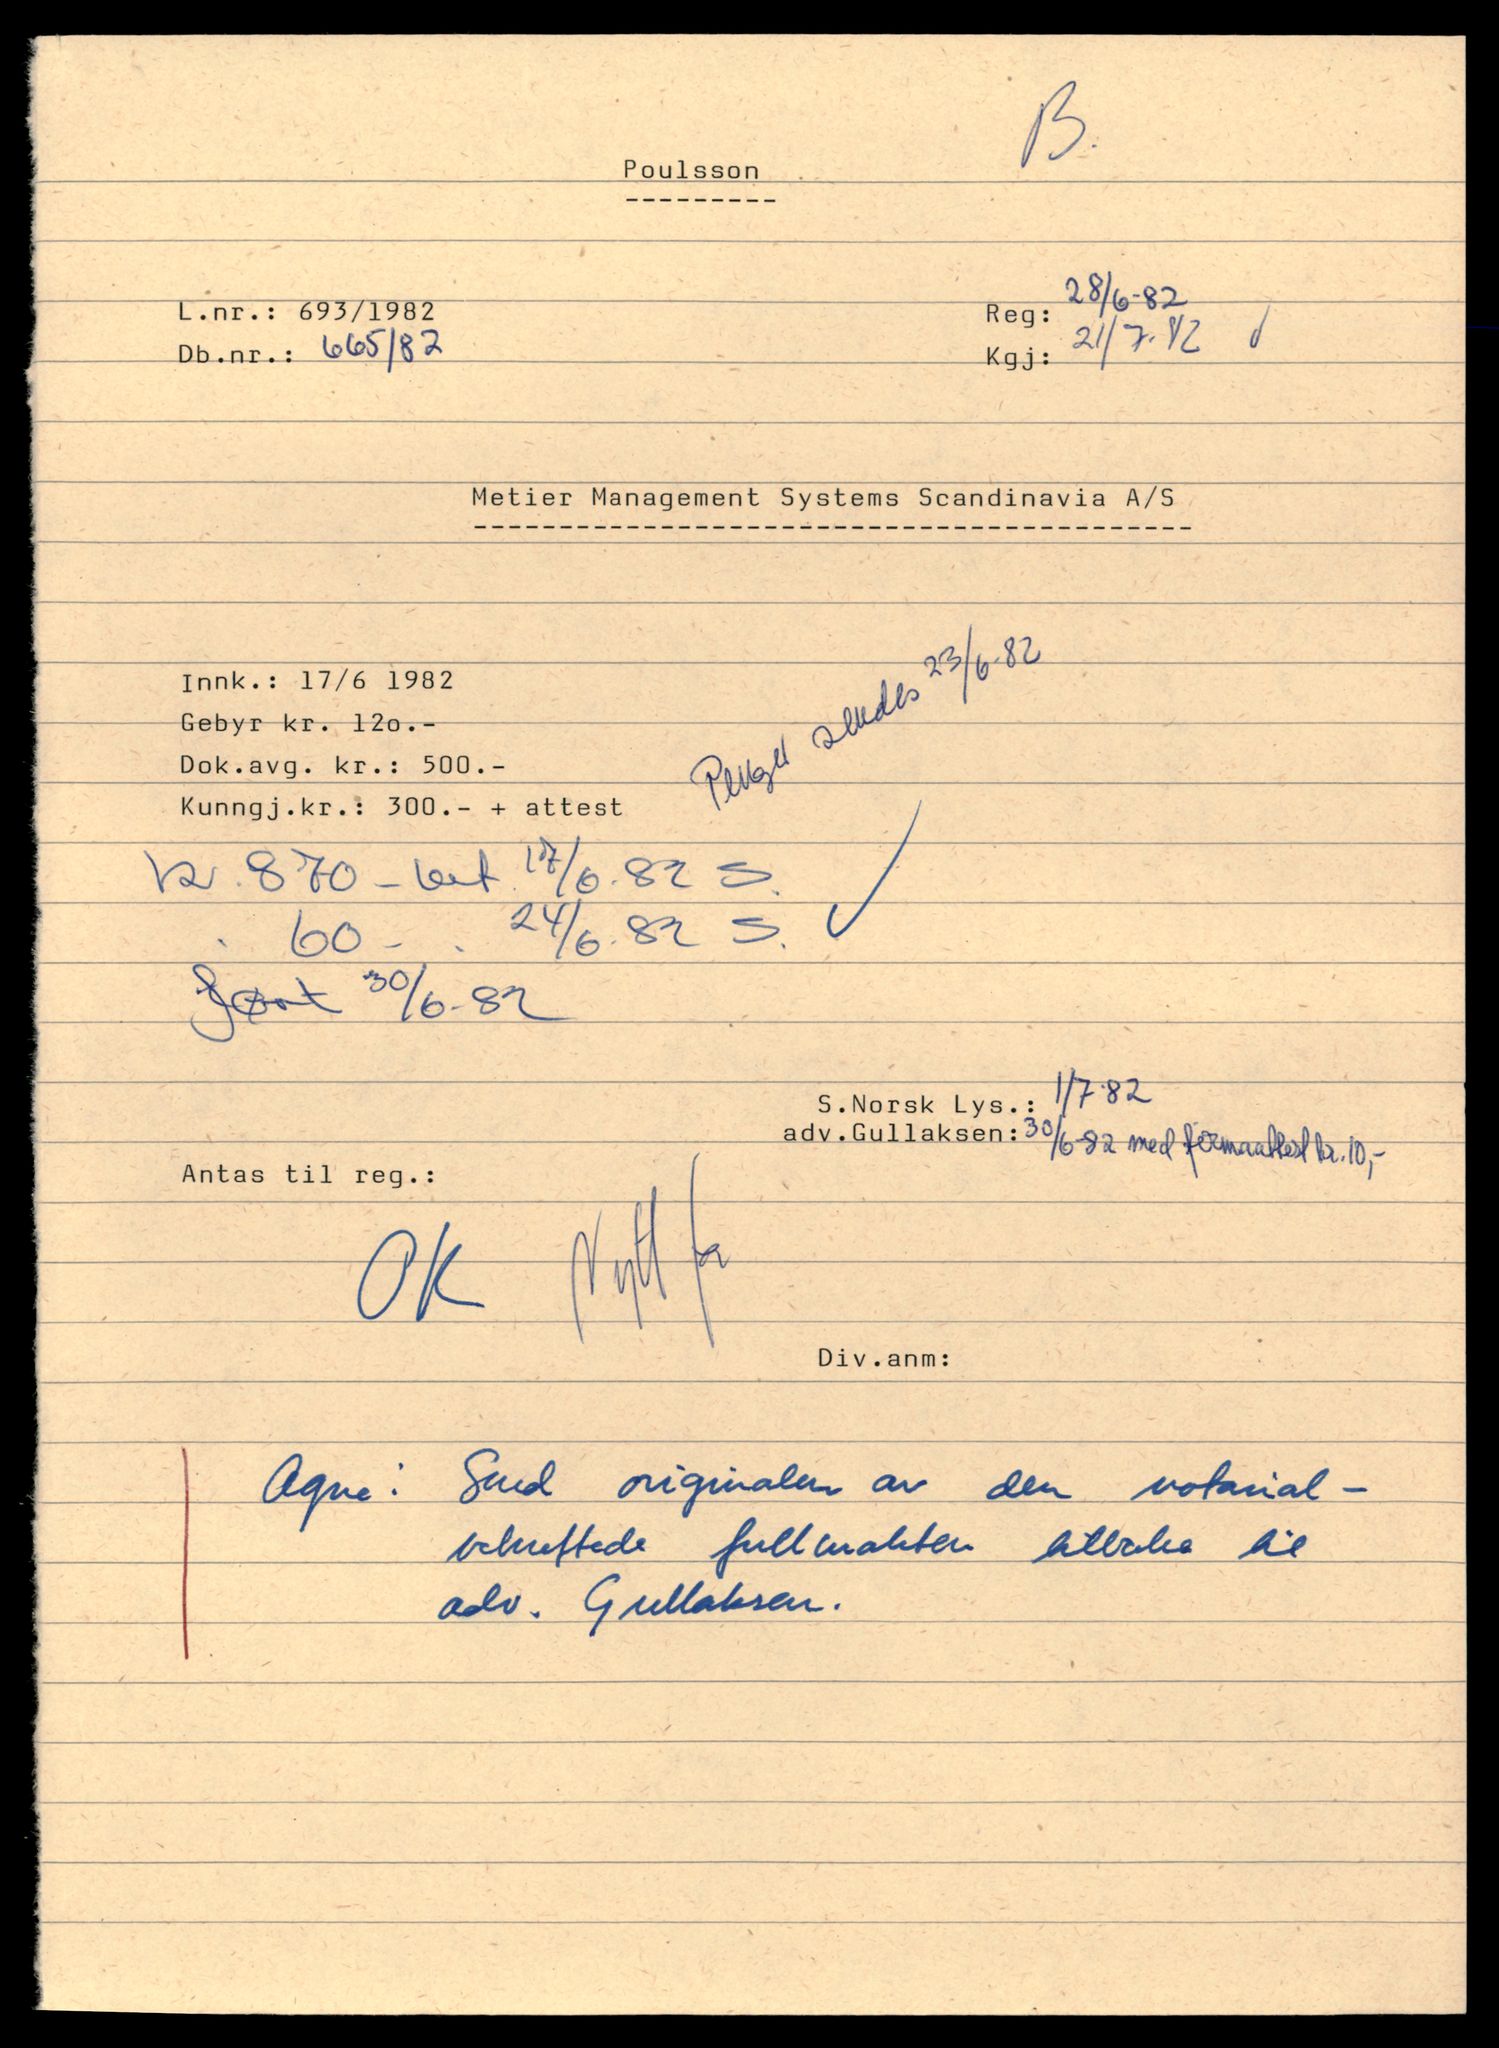 B.
Poulsson
L.nr.: 693/1982
Reg: 28/6-82
Db.nr.: 665/82
Kgj: 21/7.82
Metier Management Systems Scandinavia A/S
Penger sendes 23/6-82
Innk.: 17/6 1982
Gebyr kr. 12o.-
Dok.avg. kr.: 500.-
Kunngj.kr.: 300.- + attest
kr. 870 - bet. 17/6.82 S.
" 60 - " 24/6.82 S.
ført 30/6-82
S.Norsk Lys.: 1/7-82
adv.Gullaksen: 30/6-82 med firmaattest kr. 10,-
Antas til reg.:
OK Nytt fa
Div.anm:
Send originalen av den notarial-
bekreftede fullmakten tilbake til
adv. Gullaksen.